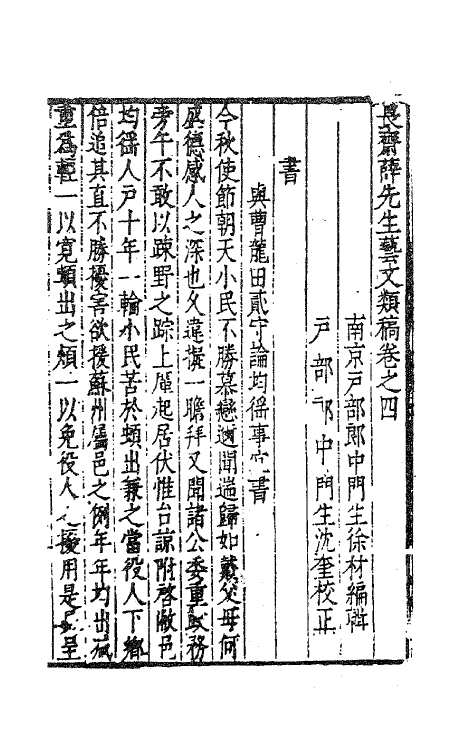 艮齋薛先生藝文類稿卷之四
南京戶部郎中門生徐材編輯
戶部郎中門生沈奎校正
書
與曹龍田貳守論均徭事宜書
今秋使節朝天小民不勝慕戀適聞遄歸如戴父母何
盛德感人之深也久違擬一瞻拜又聞諸公委重政務
旁午不敢以踈野之踪上廑起居伏惟台諒附啓敝邑
均徭人戶十年一輪小民苦於頓出兼之當役人下鄉
倍追其直不勝擾害欲援蘇州屬邑之例年年均出減
重爲輕一以寛頓出之頪一以免役人之擾用是 呈